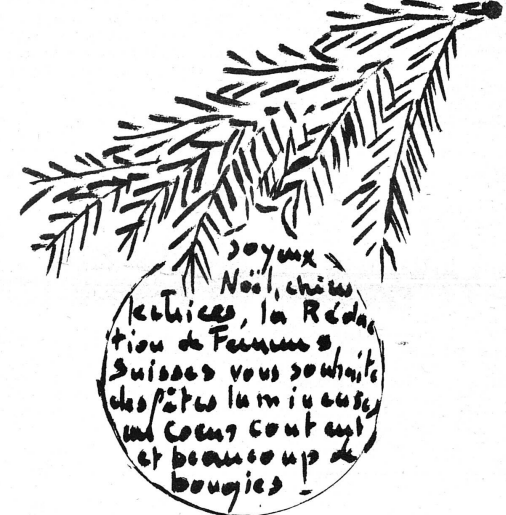 Joyeux
Noël, chères
lectrices, la Rédac
tion de Femmes
Suisses vous souhaite
des fêtes lumineuses
un coeur content
et beaucoup de
bougies !